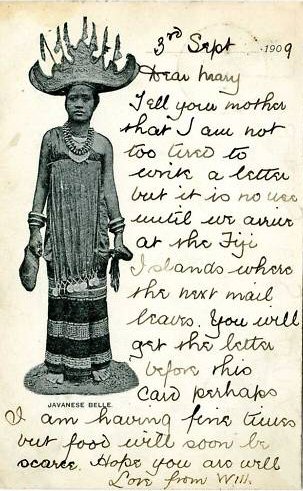 3rd Sept 1909
Dear Mary
Tell your mother
that I am not
too tired to
write a letter
but it is no use
until we arrive
at the Fiji
Islands where
the next mail
leaves. You will
get the letter
before this
card perhaps
JAVANESE BELLE.
I am having fine times
but food will soon be
scarce. Hope you are well
Love from Will.